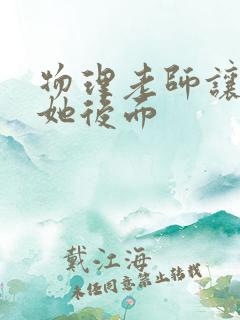 物理老师讓
她後而
戴江海
未经同意禁止转载